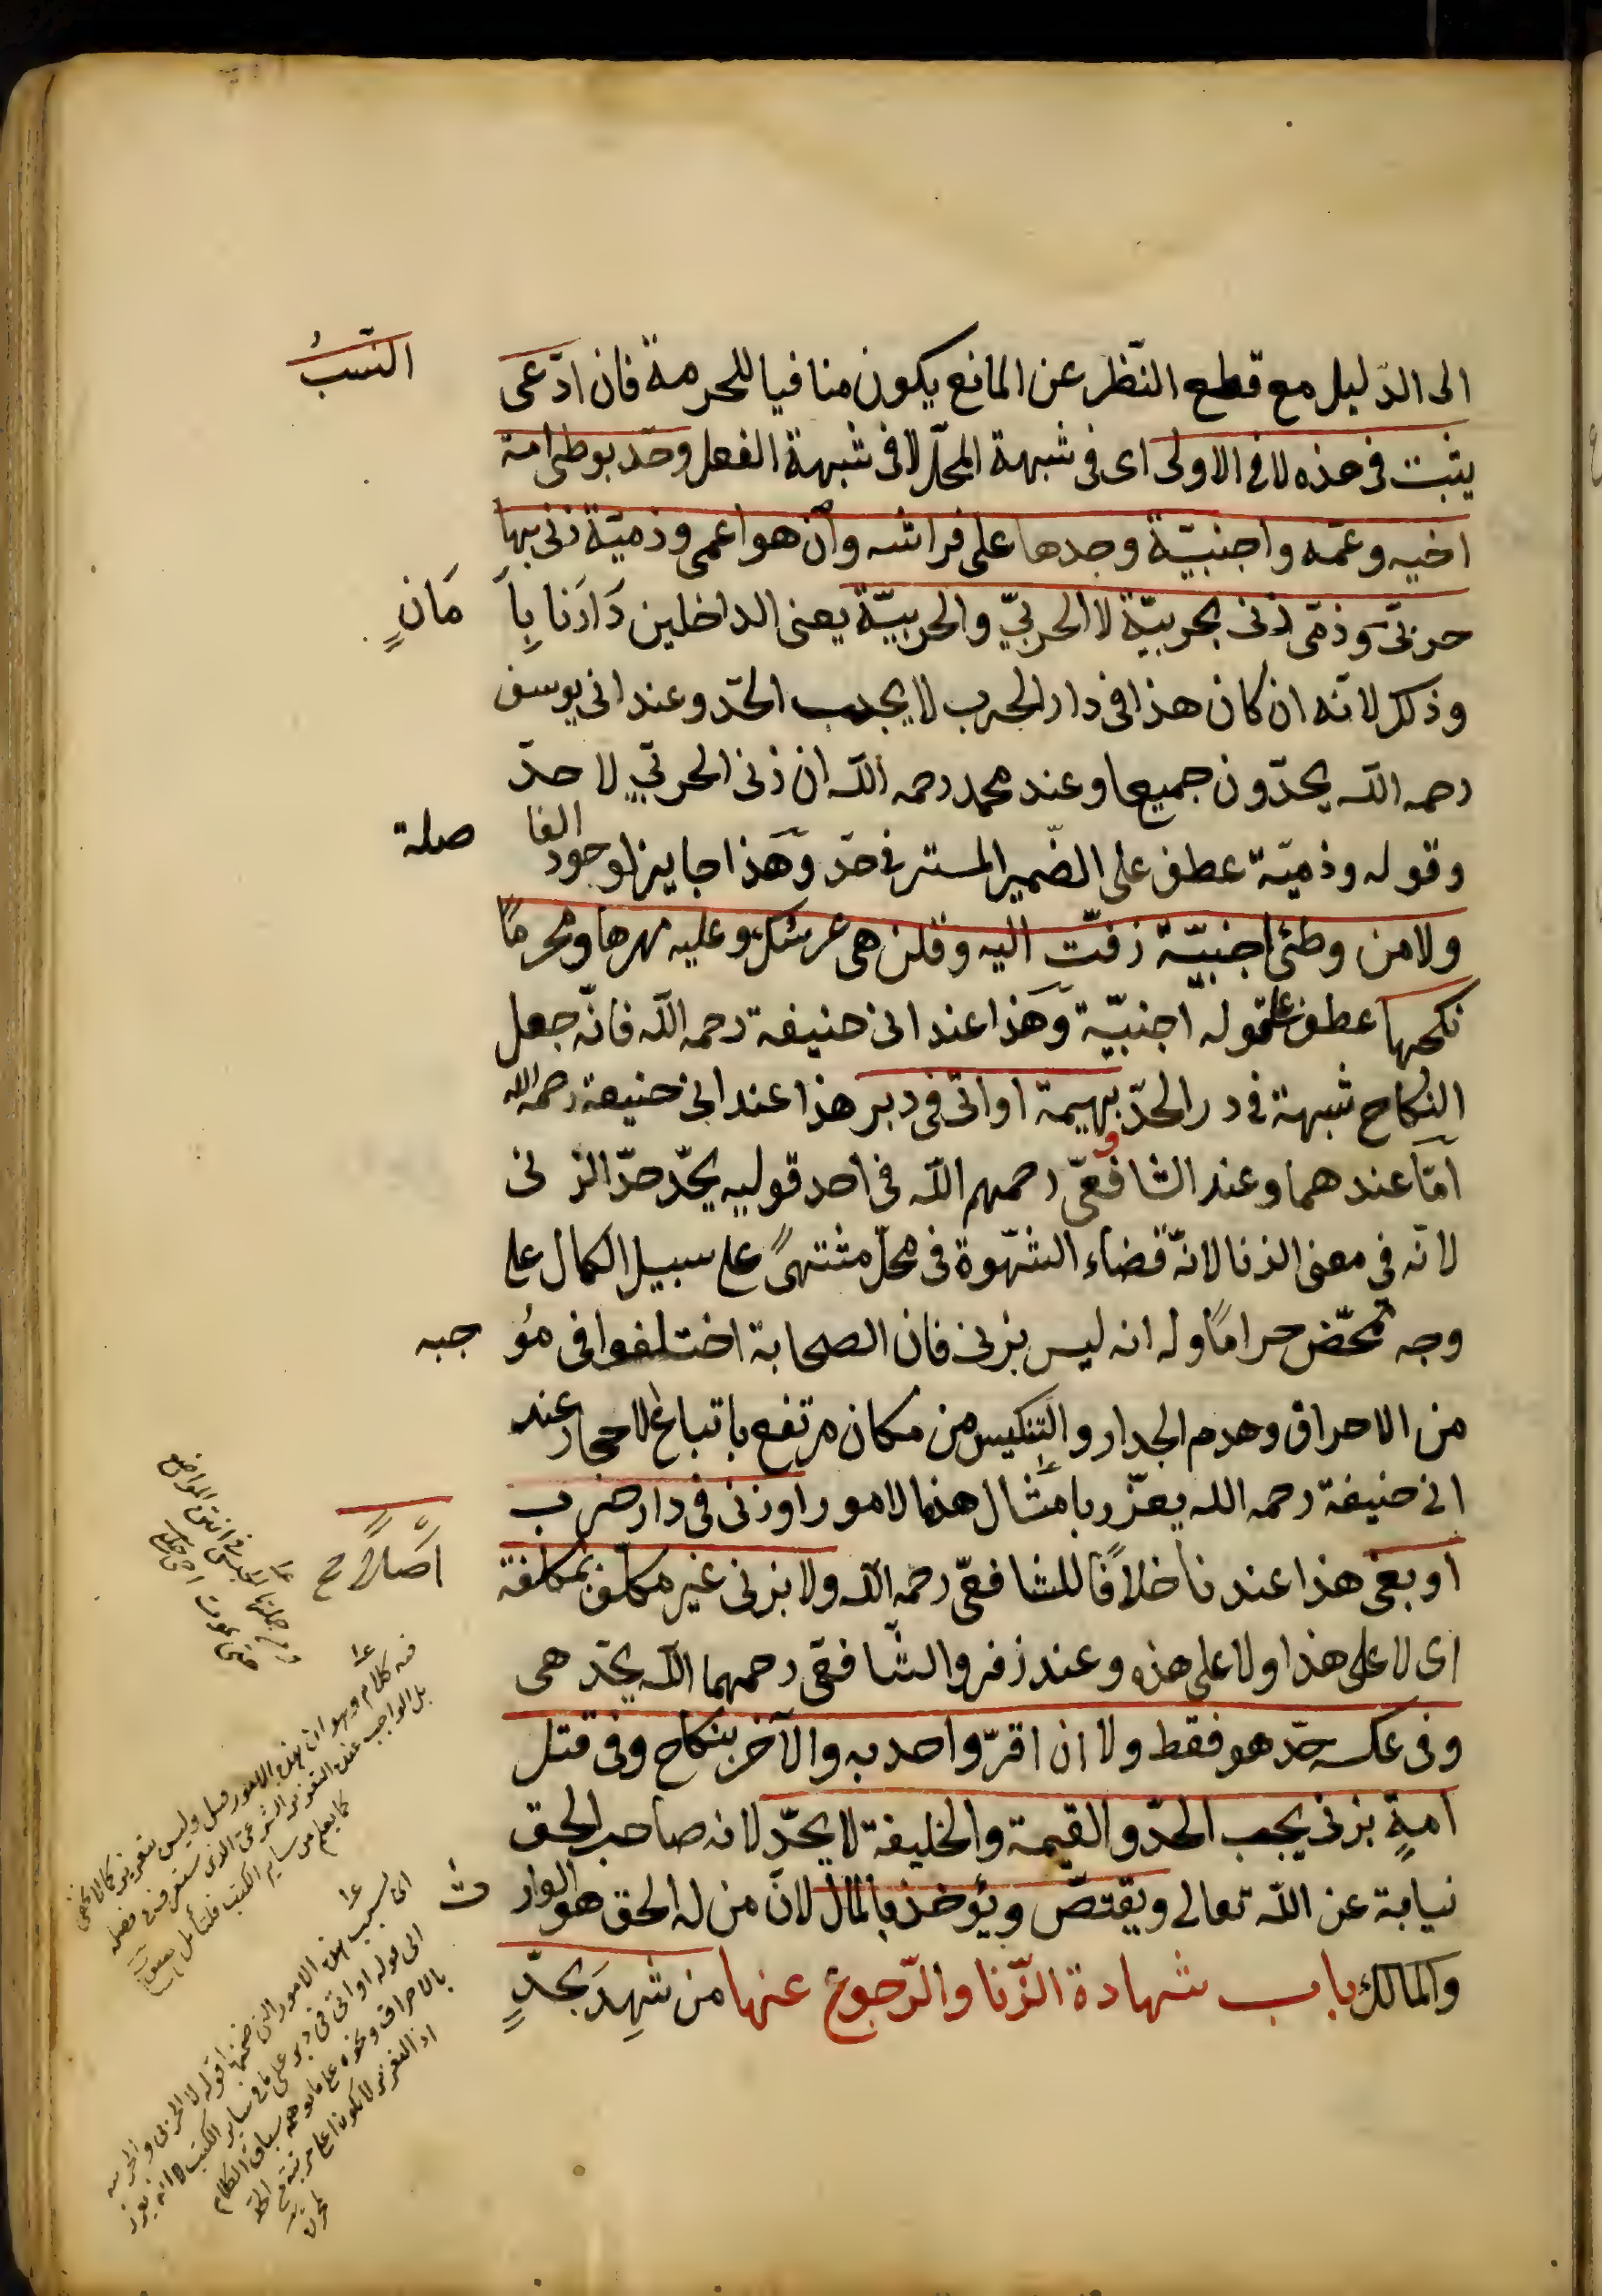 الى الدّليل مع قطع النّظر عن المانع يكون منافيا للحرمة فان ادّعى النّسبُ
يثبت فى هذه لا فى الاولى اى فى شبهة المحلّ لا فى شبهة الفعل وحدّ بوطئ امة
اخيه وعمّه واجنبيّة وجدها على فراشه وان هو اعمى وذميّة زنى بها
حربىّ وذمّى زنى بحربيّة لا الحربىّ والحربيّة يعنى الداخلين دَارَنا بِاَ مَانٍ
وذكر لانّه ان كان هذا فى دار الحرب لا يجب الحدّ وعند ابى يوسف
رحمه اللّه يحدّون جميعا وعند محمد رحمه اللّه ان زنى الحربىّ لا حدّ
وقوله وذميّة عطف على الضّمير المستتر فى حدّ وهذا جايز لوجود الفا صلة
ولا من وطئ اجنبيّة زفّت اليه وقلن هى عرسك وعليه مهرها ومحرمًا
نكحها عطف على قوله اجنبيّة وهذا عند ابى حنيفة رحمه اللّه فانّه جعل
النكاح شبهة فى در الحدّ بهيمة او اتى فى دبر هذا عند ابى حنيفة رحمه الله
امّا عندهما وعند الشافعىّ رحمهم اللّه فى احد قوليه يحدّ حدّ الزنى
لانّه فى معنى الزنا لانّه قضاء الشّهوة فى محلّ مشتهىً على سبيل الكمال على
وجه تمحّض حرامًا وله انه ليس بزنى فان الصحابة اختلفوا فى مُو جبه
من الاحراق وهدم الجدار والتنكيس من مكان مرتفع باتباع الاحجار عند
ابى حنيفة رحمه الله يعزّر بامثال هذه الامور او زنى فى دار حرب
او بغى هذا عندنا خلافًا للشافعىّ رحمه اللّه ولا بزنى غير مكلّف بمكلفة اَصْلاً ح
اى لا على هذا ولا على هذه وعند زفر والشّافعى رحمهما اللّه يحدّ هى
وفى عكسه حدّ هو فقط ولا ان اقرّ واحد به والآخر بنكاح وفى قتل
امةٍ بزنى يجب الحدّ والقيمة والخليفة لا يحدّ لانه صاحب الحق
نيابة عن اللّه تعالى ويقتصّ ويؤخذ بالمال لانّ من له الحق هو الوار ث
والمالك باب شهادة الزّنا والرّجوع عنها من شَهِدَ بحدٍّ
فيه كلام وهو ان هذه الامور قتل وليس بتعزير كما لا يخفى
بل الواجب عنده التعزير الشرعى الذى ستعرف فى فصله
كما يعلم من ساير الكتب فليتأمل
اى بسبب هذه الامور التى ضمنها قوله لا الحربى والحربية
الى قوله او اتى فى دبر على ما فى ساير الكتب لا انه يعزر
بالاحراق ونحوه على ما يوهمه سياق الكلام
اذ التعزير لا يكون اعلى مرتبة من الحد